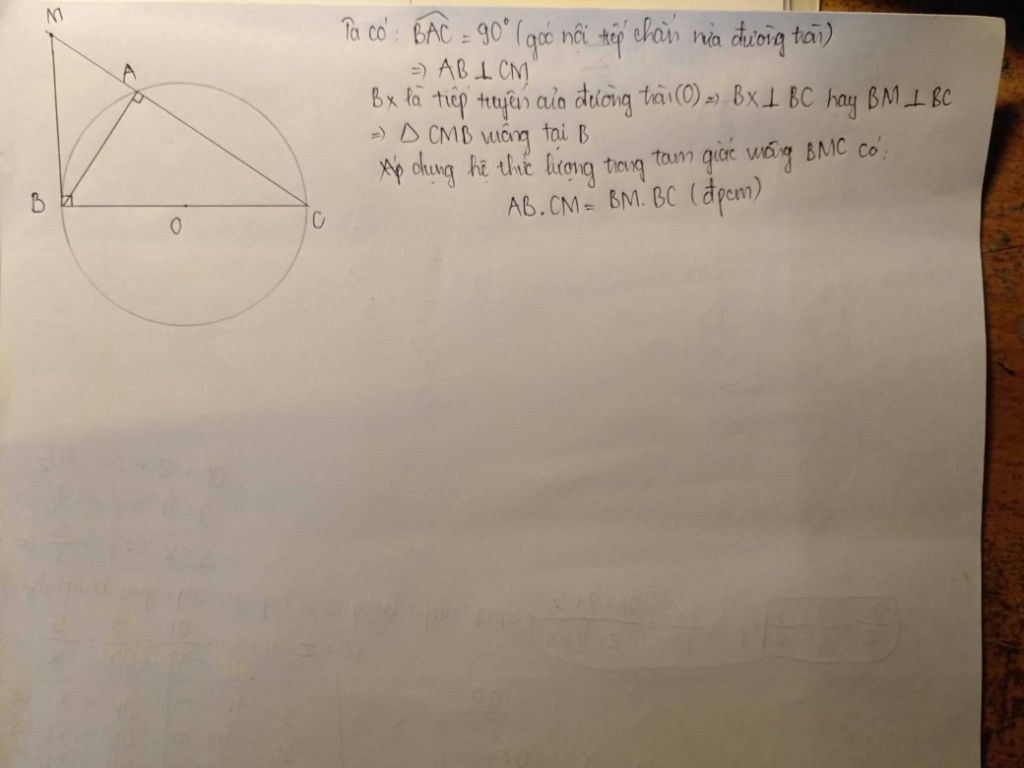 M
A
B
O
C
Ta có: BAC = 90° (góc nội tiếp chắn nửa đường tròn)
=> AB ⊥ CM
Bx là tiếp tuyến của đường tròn (O) => Bx ⊥ BC hay BM ⊥ BC
=> Δ CMB vuông tại B
Áp dụng hệ thức lượng trong tam giác vuông BMC có:
AB.CM = BM.BC (đpcm)